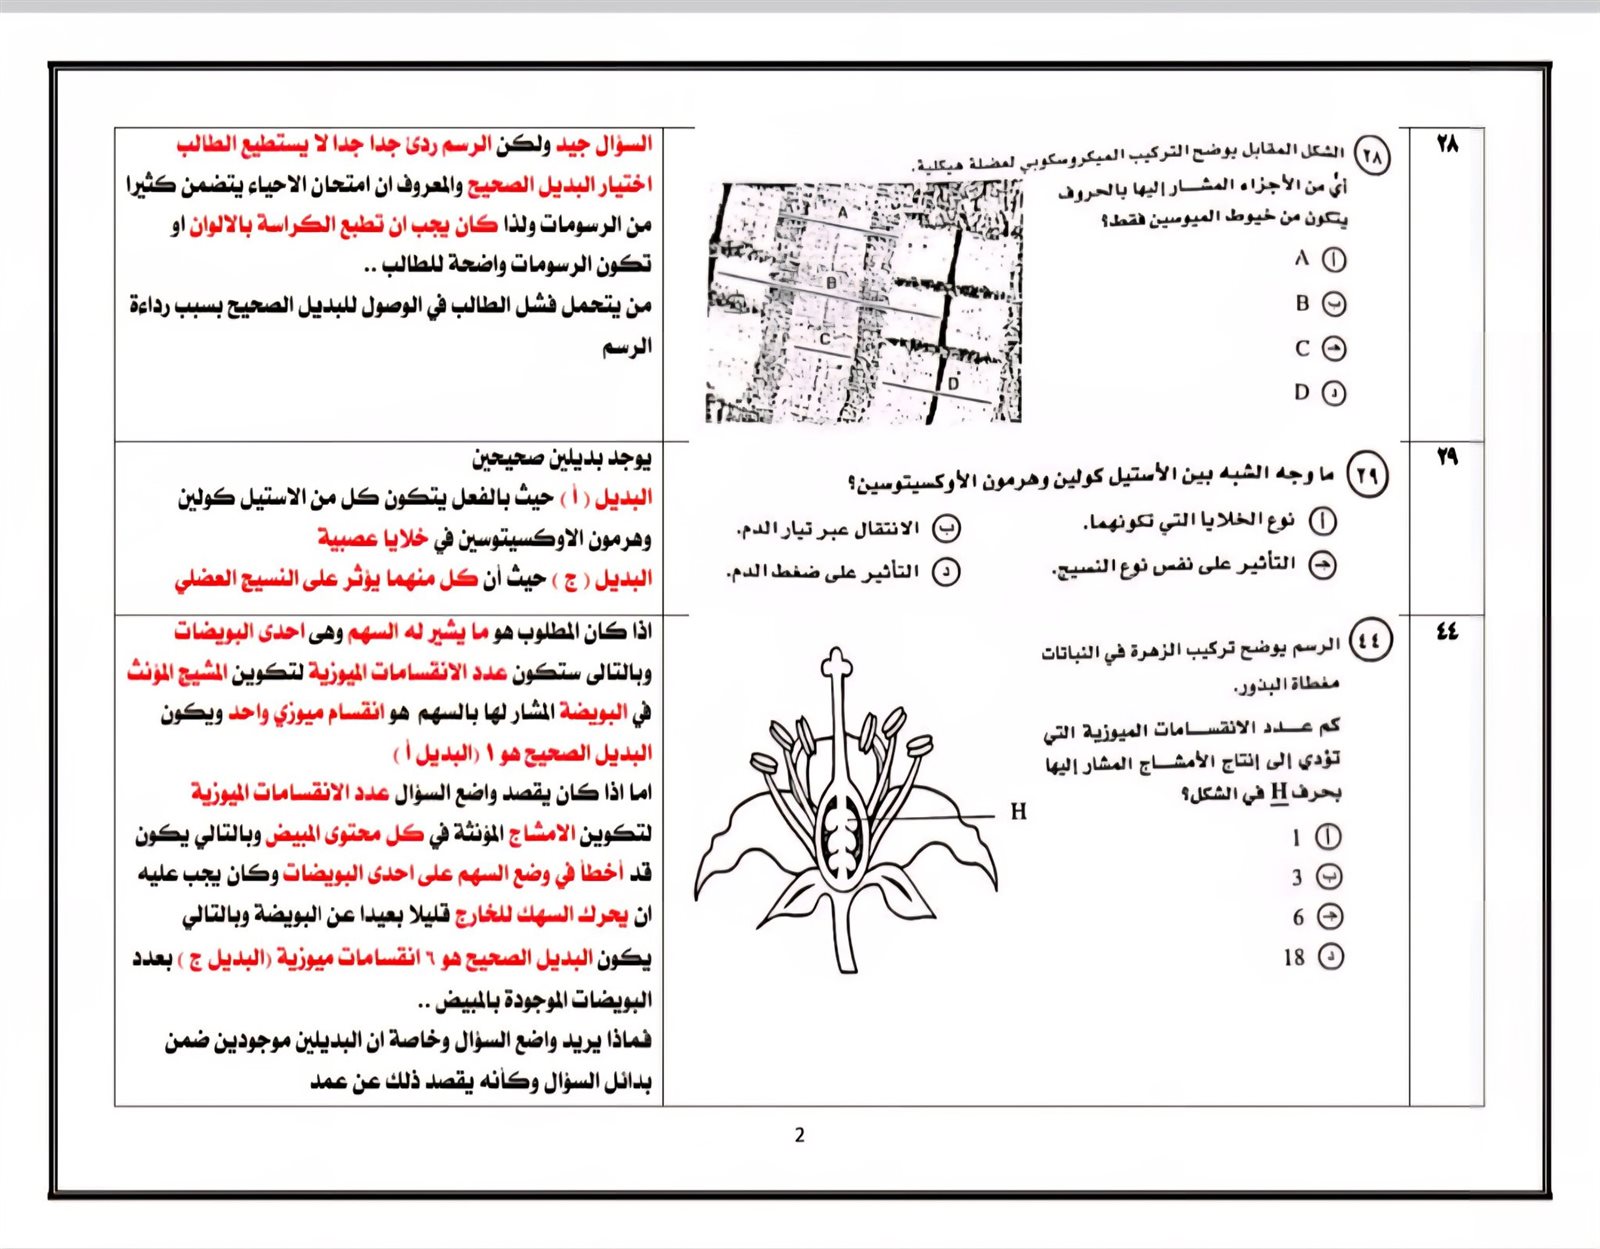 ٢٨
٢٨ الشكل المقابل يوضح التركيب الميكروسكوبي لعضلة هيكلية.
أيٌ من الأجزاء المشار إليها بالحروف
يتكون من خيوط الميوسين فقط؟
أ A
ب B
جـ C
د D
A
B
C
D
السؤال جيد ولكن الرسم ردئ جدا جدا لا يستطيع الطالب
اختيار البديل الصحيح والمعروف ان امتحان الاحياء يتضمن كثيرا
من الرسومات ولذا كان يجب ان تطبع الكراسة بالالوان او
تكون الرسومات واضحة للطالب ..
من يتحمل فشل الطالب في الوصول للبديل الصحيح بسبب رداءة
الرسم
٢٩
٢٩ ما وجه الشبه بين الأستيل كولين وهرمون الأوكسيتوسين؟
أ نوع الخلايا التي تكونهما.
ب الانتقال عبر تيار الدم.
جـ التأثير على نفس نوع النسيج.
د التأثير على ضغط الدم.
يوجد بديلين صحيحين
البديل ( أ ) حيث بالفعل يتكون كل من الاستيل كولين
وهرمون الاوكسيتوسين في خلايا عصبية
البديل ( ج ) حيث أن كل منهما يؤثر على النسيج العضلي
٤٤
٤٤ الرسم يوضح تركيب الزهرة في النباتات
مغطاة البذور.
كم عدد الانقسامات الميوزية التي
تؤدي إلى إنتاج الأمشاج المشار إليها
بحرف H في الشكل؟
أ 1
ب 3
جـ 6
د 18
H
اذا كان المطلوب هو ما يشير له السهم وهى احدى البويضات
وبالتالى ستكون عدد الانقسامات الميوزية لتكوين المشيج المؤنث
في البويضة المشار لها بالسهم هو انقسام ميوزي واحد ويكون
البديل الصحيح هو ١ (البديل أ )
اما اذا كان يقصد واضع السؤال عدد الانقسامات الميوزية
لتكوين الامشاج المؤنثة في كل محتوى المبيض وبالتالي يكون
قد أخطأ في وضع السهم على احدى البويضات وكان يجب عليه
ان يحرك السهك للخارج قليلا بعيدا عن البويضة وبالتالي
يكون البديل الصحيح هو ٦ انقسامات ميوزية (البديل ج ) بعدد
البويضات الموجودة بالمبيض ..
فماذا يريد واضع السؤال وخاصة ان البديلين موجودين ضمن
بدائل السؤال وكأنه يقصد ذلك عن عمد
2